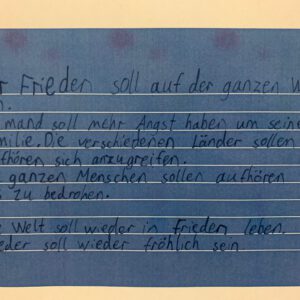 r Frieden soll auf der ganzen W
n.
mand soll mehr Angst haben um seine
milie. Die verschiedenen Länder sollen
fhören sich anzugreifen.
ganzen Menschen sollen aufhören
s zu bedrohen.
e Welt soll wieder in Frieden leben.
eder soll wieder fröhlich sein